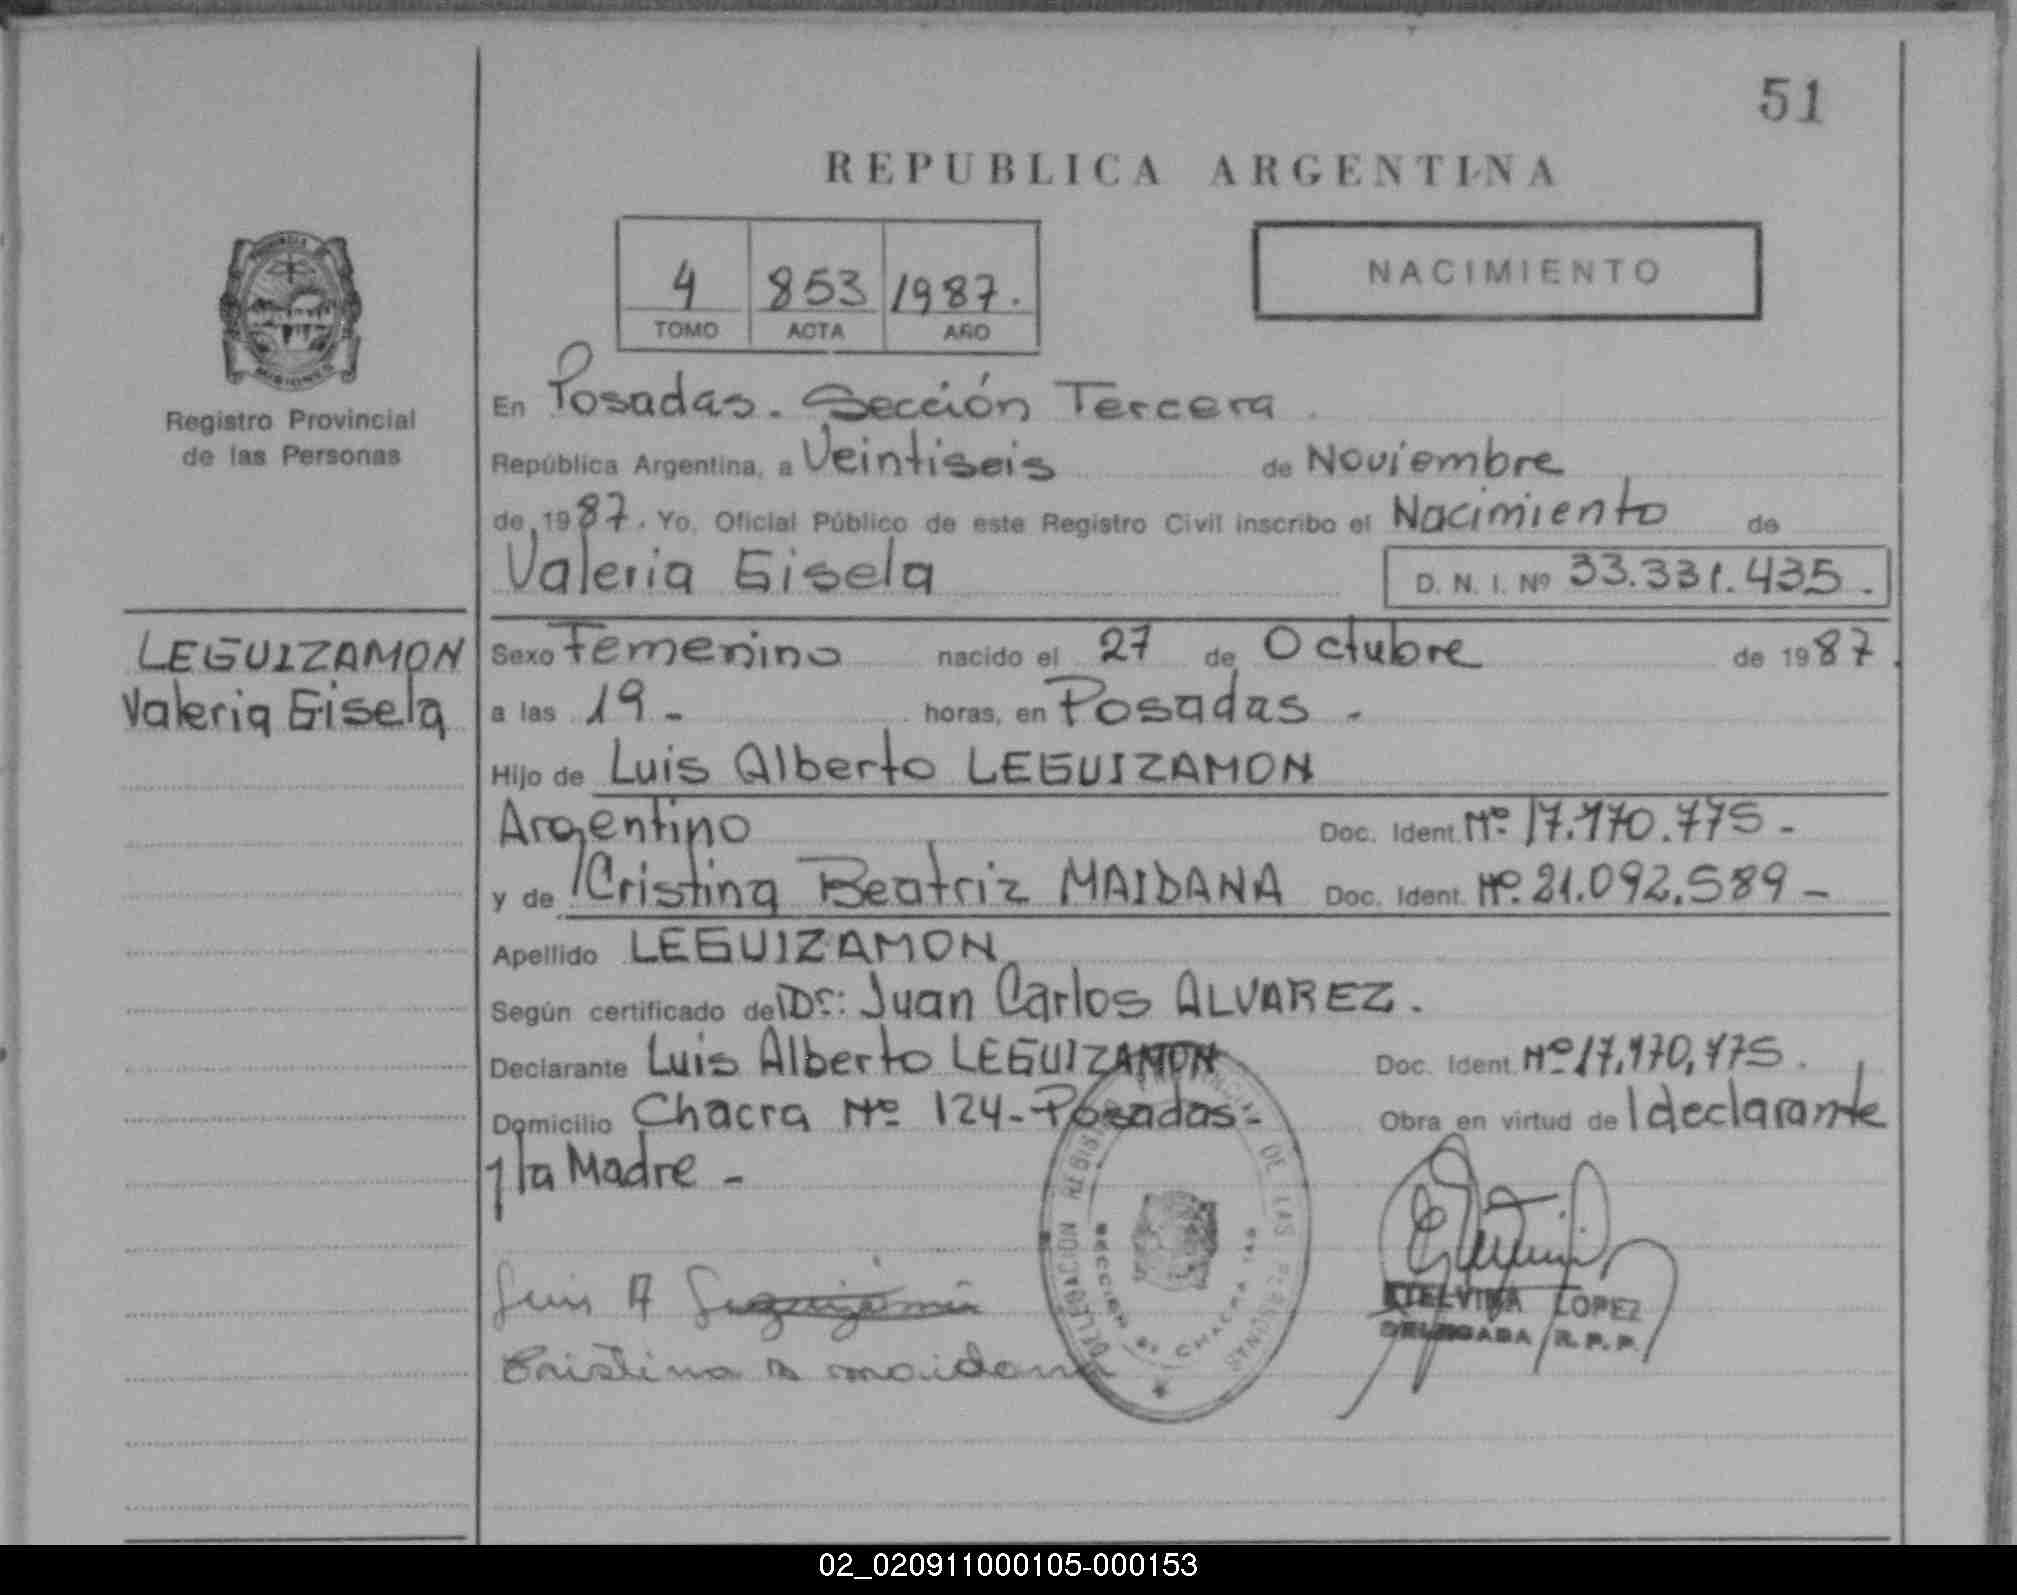 51
REPUBLICA ARGENTINA
4 853 1987.
TOMO ACTA AÑO
NACIMIENTO
MISIONES
Registro Provincial
de las Personas
En Posadas. Sección Tercera.
República Argentina, a Veintiseis de Noviembre
de 1987. Yo, Oficial Público de este Registro Civil inscribo el Nacimiento de
Valeria Gisela D. N. I. Nº 33.331.435.
LEGUIZAMON
Valeria Gisela
Sexo Femenino nacido el 27 de Octubre de 1987.
a las 19- horas, en Posadas.
Hijo de Luis Alberto LEGUIZAMON
Argentino Doc. Ident. Nº 17.170.775-
y de Cristina Beatriz MAIDANA Doc. Ident. Nº 21.092.589-
Apellido LEGUIZAMON
Según certificado del Dr: Juan Carlos ALVAREZ.
Declarante Luis Alberto LEGUIZAMON Doc. Ident. Nº 17.170.775.
Domicilio Chacra Nº 124-Posadas- Obra en virtud de l declarante
y la Madre-
DELEGACION REGISTRO PROVINCIAL DE LAS PERSONAS
CHACRA
Luis A Leguizamón
Cristina B maidana
ETELVINA LOPEZ
DELEGADA R.P.P.
02_020911000105-000153